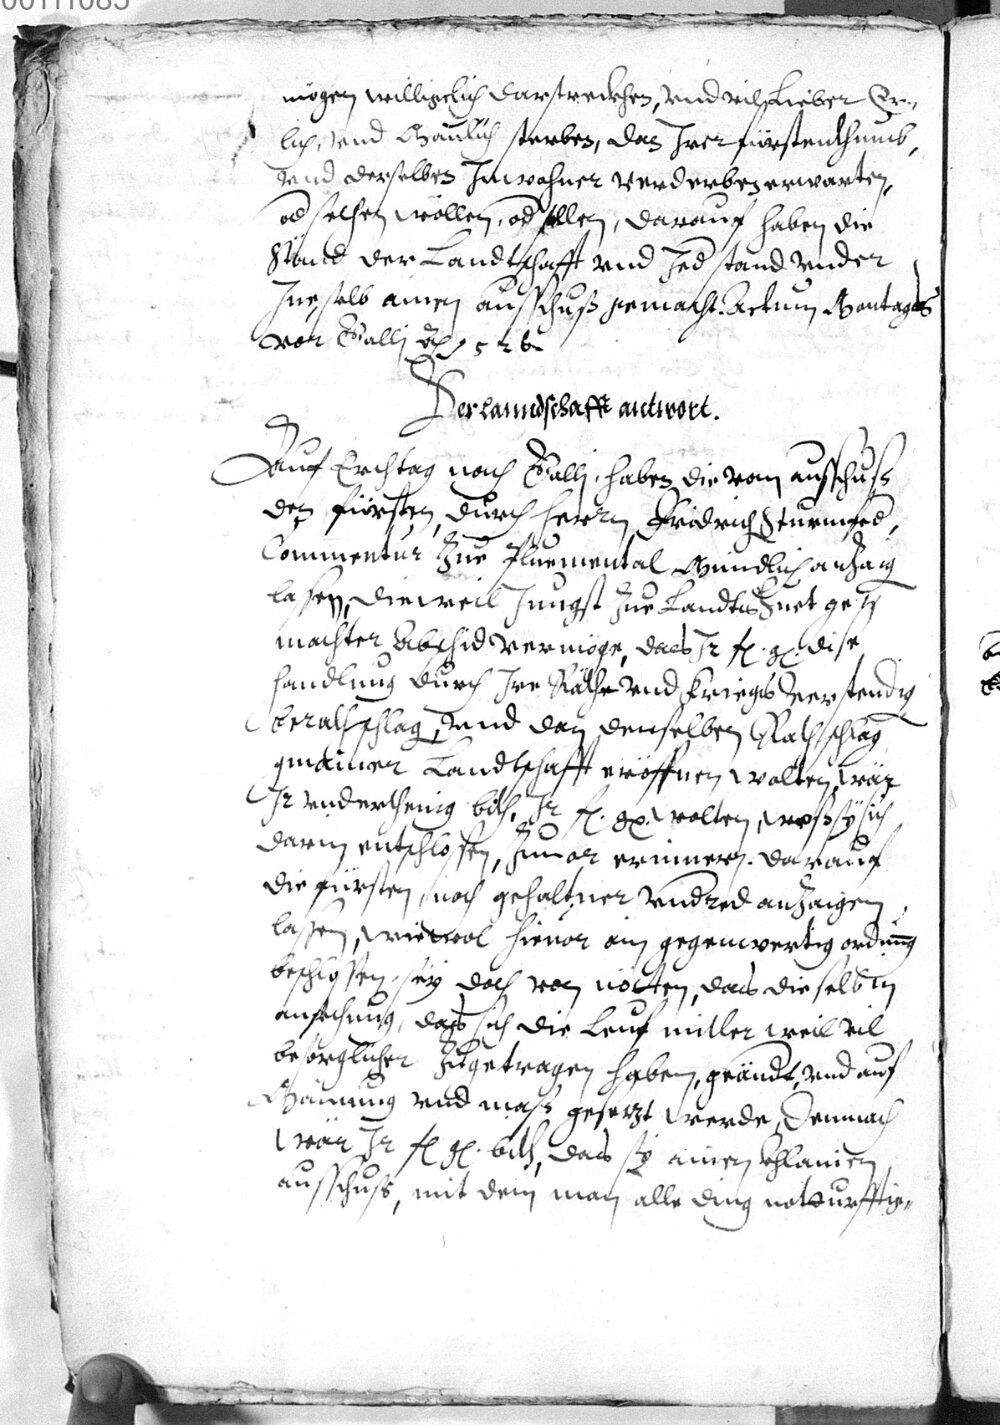 00111085
mögen willigclich darstreckhen, vnd vil Lieber Er-,
lich, vnd Mänlich sterben, dan Irer fürstenthumb,
vnd derselben Inwohner verderben erwarten,
od sehen wöllen, od sollen, darauf haben die
Stännd der Landtschafft vnd Jed stand vnder
Ine selb ainen ausschuß gemacht. Actum Montags
vor Galli
Der lanndschafft antwort.
Auf Erchtag nach Galli, haben die vom ausschuß
den fürsten, durch herrn Fridrich Sturmfed,
Commentur Zue Pluemental Mündlich anZaig
lassen, dieweil Jungst Zue Landtshuet ge-
machter Abschid vermöge, das Ir fl. gl. dise
handlung durch Ire Räthe vnd kriegs verstendig
berathschlag, vnd dan denselben Rathschlag
gmainer Landtschafft eröffnen wolten, wär
Ir vnderthenig bith, Ir fl. gl. wolten, weß sy sich
darin entschlossen, Zuuor erinnern. darauf
die fürsten, nach gehaltner vndred anZaigen
lassen, wiewol hieuor ain gegenwertig ordnung
beschlossen, sey doch von nöten, das dieselb in
ansechung, das sich die Leuf mitler weil vil
besorglicher Zugetragen haben, geändt, vnd auf
Mainung vnd maß gesezt werde, Demnach
wär Ir fl. gl. bith, das sy ainen khlainen
ausschuß, mit dem man alle ding noturfftig-